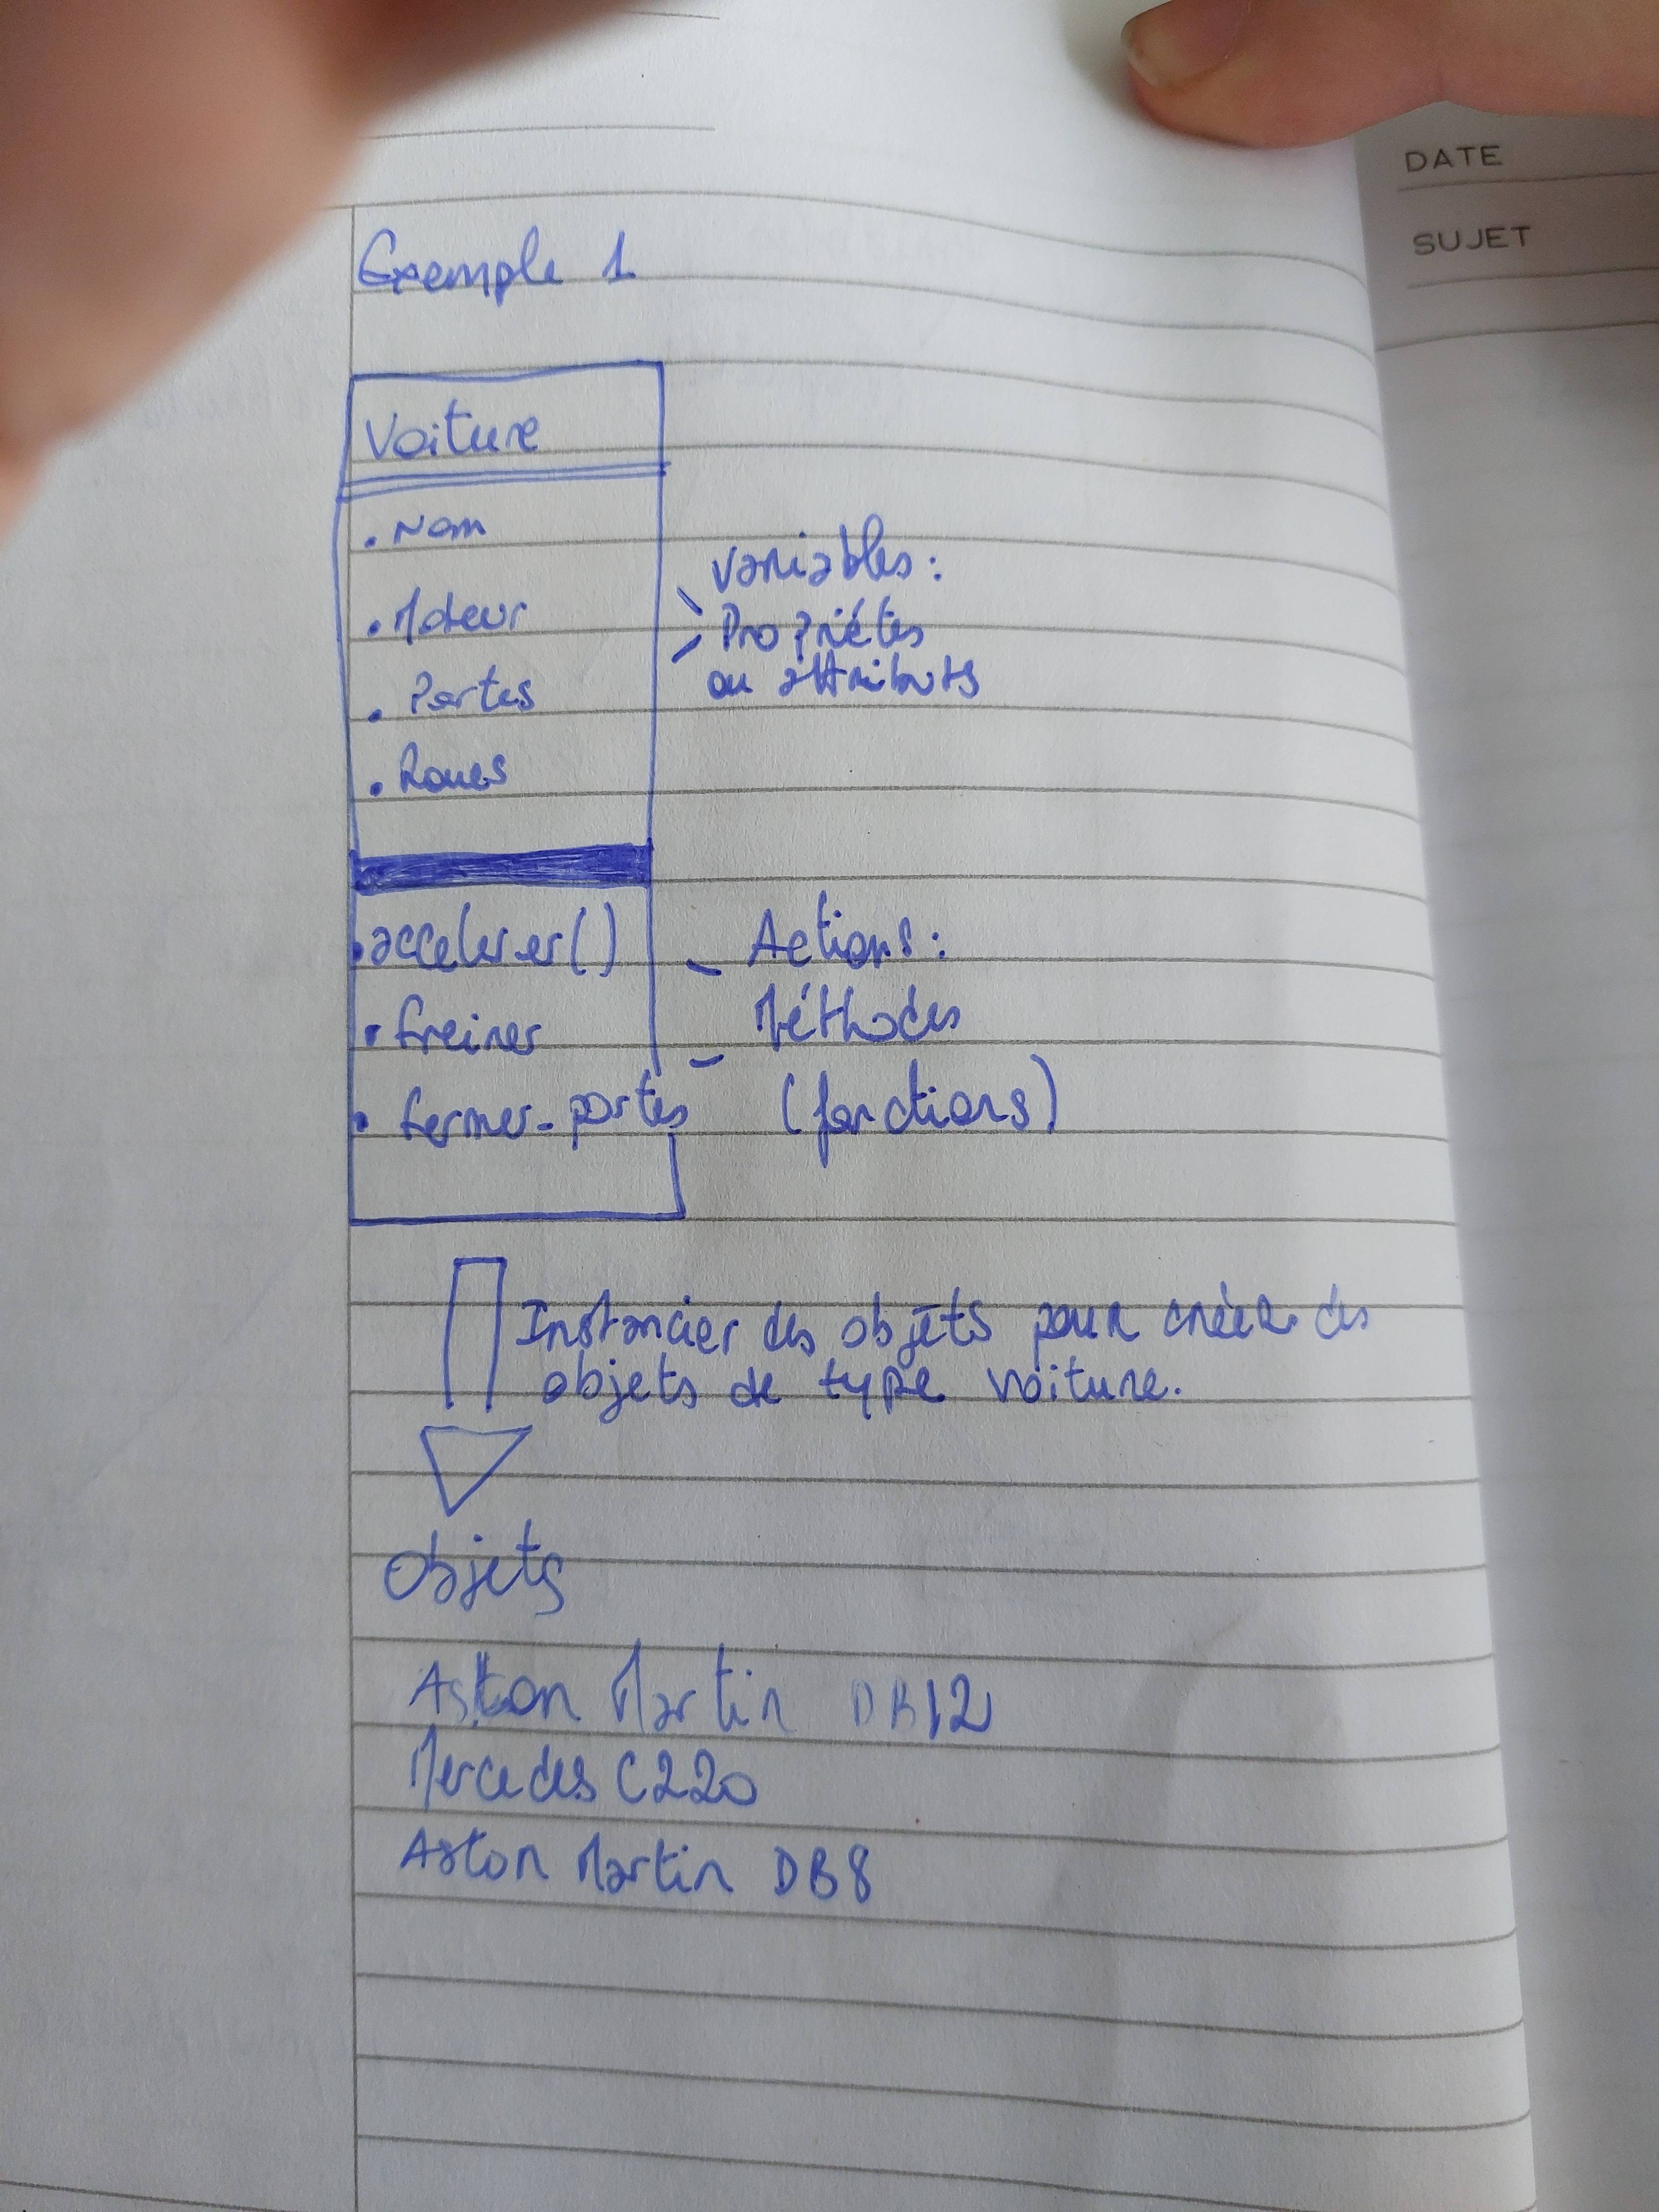 DATE
SUJET
Exemple 1
Voiture
. Nom
. Moteur
. Portes
. Roues
variables :
Propriétés
ou attributs
. accelerer()
. freiner
. fermer_portes
Actions :
Méthodes
(fonctions)
Instancier des objets pour créer des
objets de type voiture.
Objets
Aston Martin DB12
Mercedes C220
Aston Martin DB8